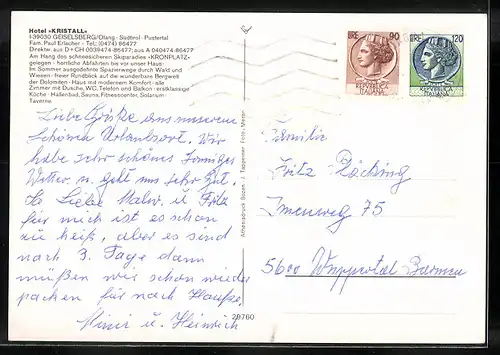 Hotel «KRISTALL»
I-39030 GEISELSBERG/Olang · Südtirol · Pustertal
Fam. Paul Erlacher - Tel.: (0474) 86477
Direktw. aus D+CH 0039474-86477; aus A 040474-86477
Am Hang des schneesicheren Skiparadies «KRONPLATZ»
gelegen · herrliche Abfahrten bis vor unser Haus
Im Sommer ausgedehnte Spazierwege durch Wald und
Wiesen · freier Rundblick auf die wunderbare Bergwelt
der Dolomiten · Haus mit modernem Komfort · alle
Zimmer mit Dusche, WC, Telefon und Balkon · erstklassige
Küche · Hallenbad, Sauna, Fitnesscenter, Solarium ·
Taverne
LIRE 90
REPUBBLICA
ITALIANA
LIRE 120
REPUBBLICA
ITALIANA
Liebe Grüße aus unserem
Schönen Urlaubsort. Wir
habe sehr schönes sonniges
Wetter u. geht uns sehr gut.
Liebe Malw. u. Fritz
für mich ist es schon
zu heiß, aber es sind
noch 3. Tage dann
müßen wir schon wieder
packen für nach Hause.
Minir u. Heinrich
Familie
Fritz Röcking
Irmenweg 75
5600 Wuppertal Barmen
Athesiadruck Bozen · J. Tappeiner Foto, Meran
29760